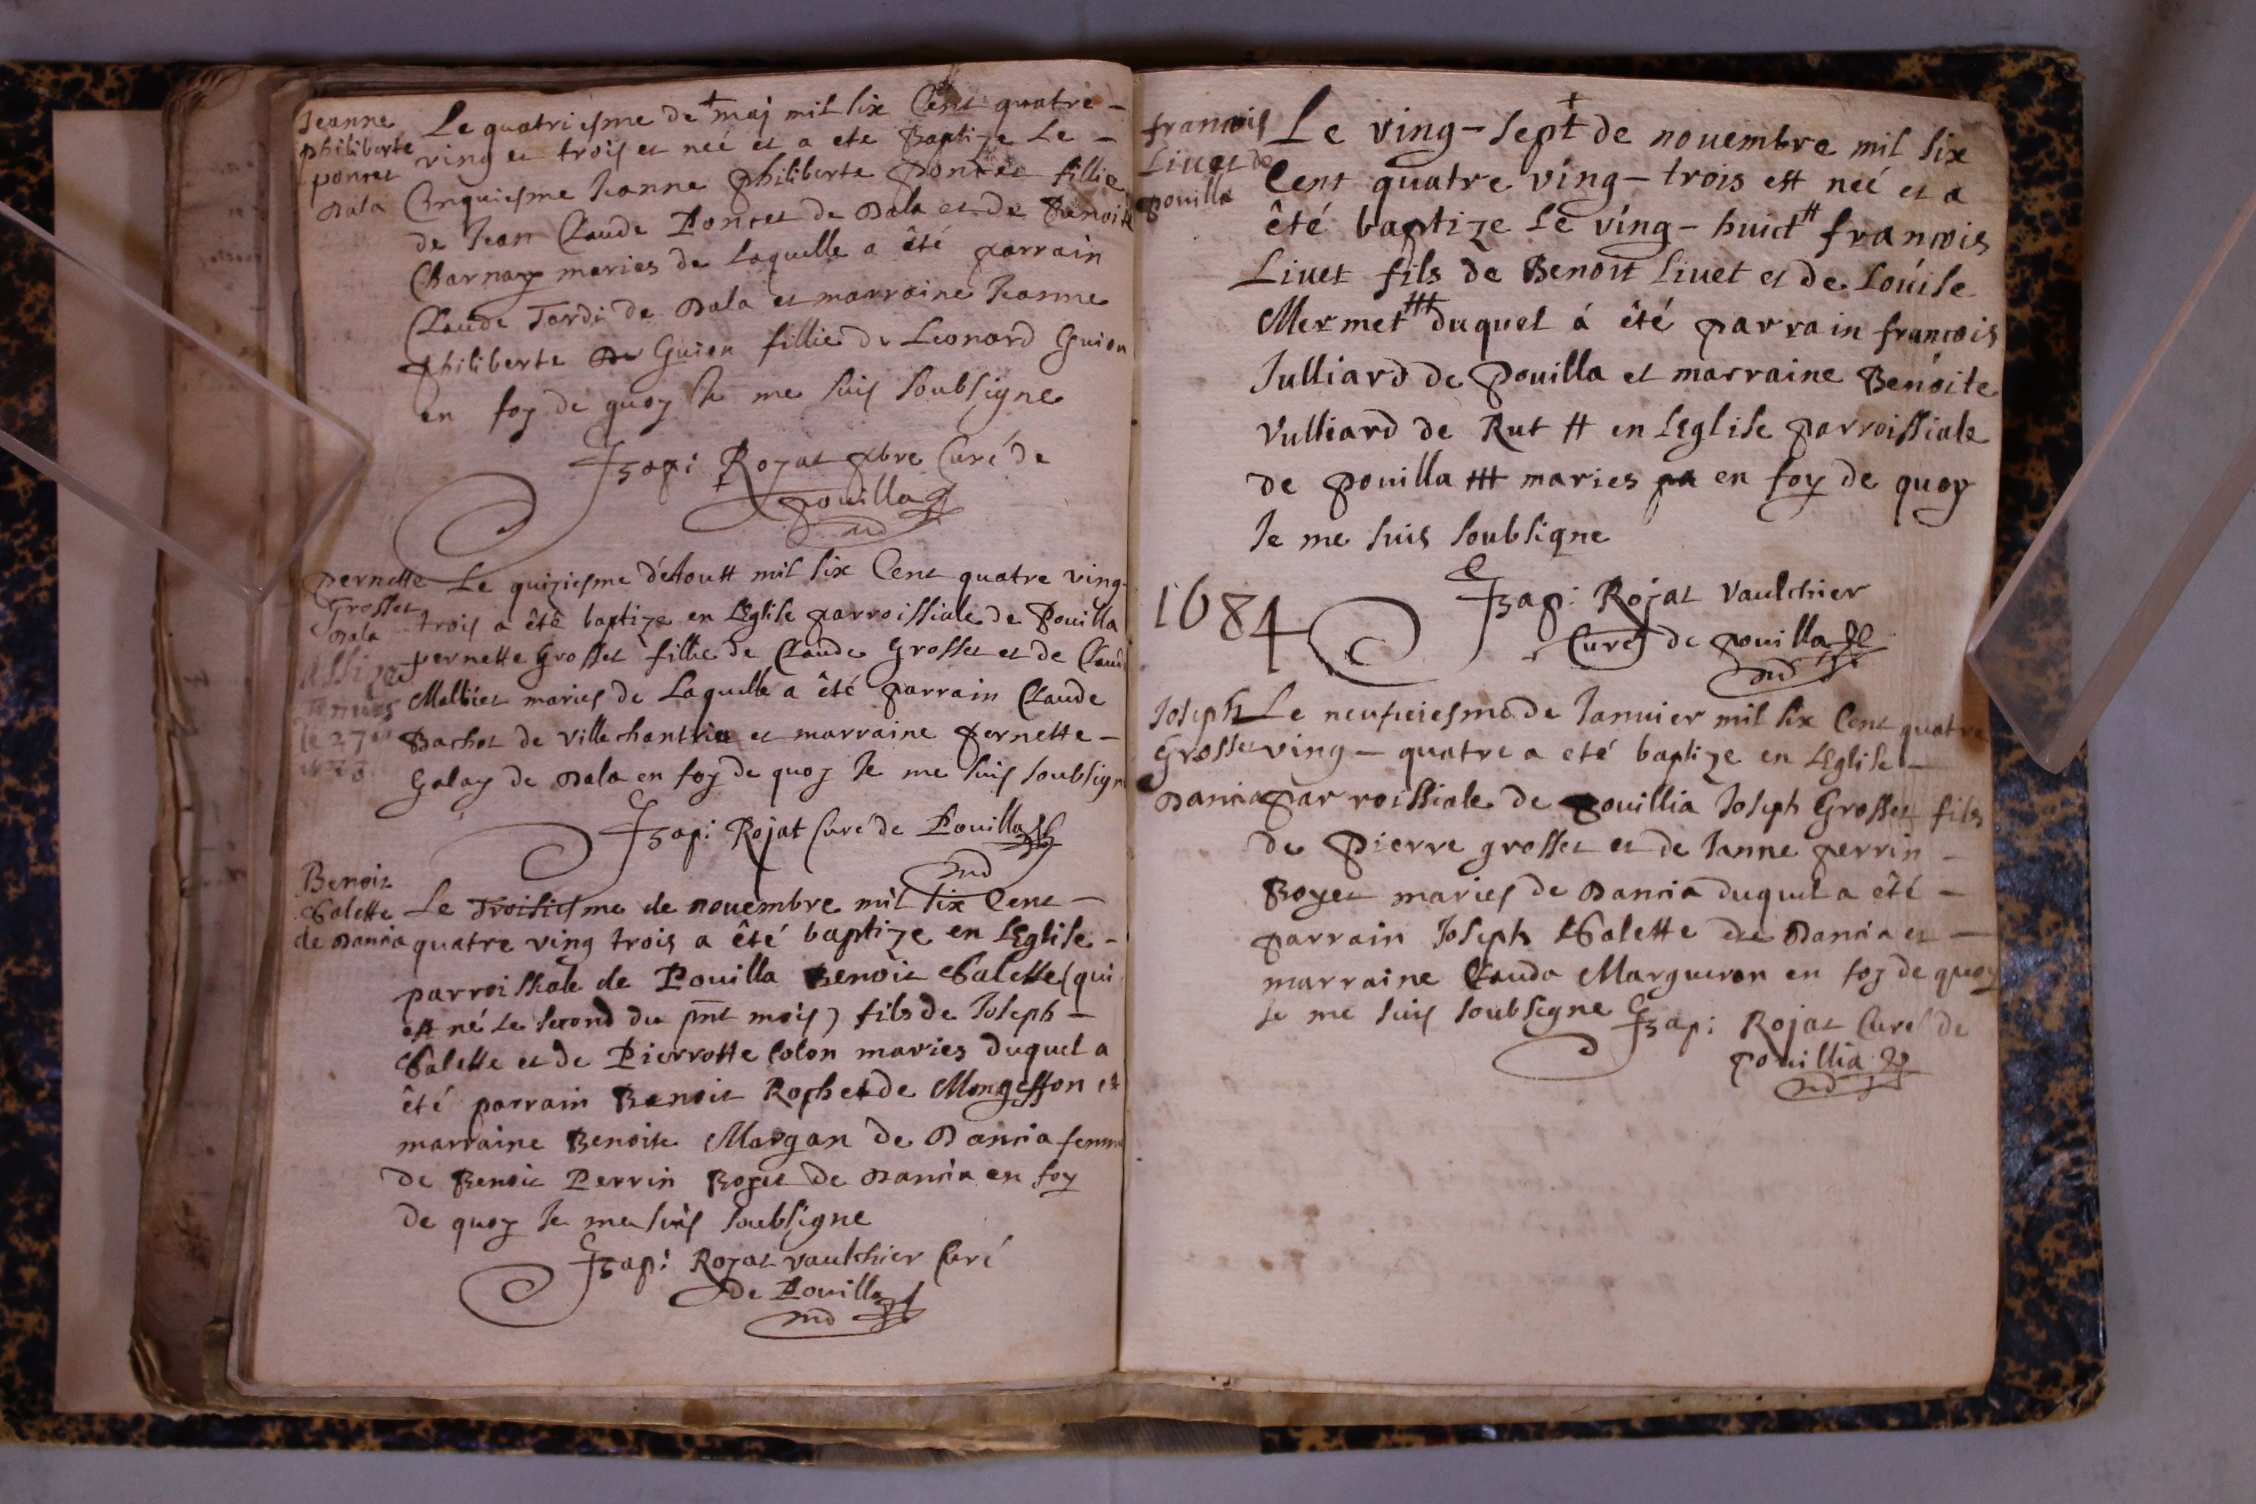 Jeanne
philiberte
poncet
Dala
Le quatriesme de maj mil six Cent quatre -
ving et trois et neé et a ete Baptize Le -
Cinquiesme Jeanne philiberte poncet fillie
de Jean Claude Poncet de Dala et de Benoite
Charnay maries de Laquelle a êté parrain
Claude Tardi de Dala et marraine Jeanne
philiberte Guion fillie de Leonard Guion
en foy de quoy Je me suis soubsigne
Rojat pbre Curé de
pouilla
pernette
Grosset
Dala
Le quiziesme d'Aoust mil six Cent quatre ving-
trois a êté baptize en LEglise parroissiale de Pouilla
pernette Grosset fillie de Claude Grosset et de Claud
Malbiet maries de Laquelle a êté parrain Claude
Bachot de villechantria et marraine pernette -
Galay de Dala en foy de quoy Je me suis soubsign
Rojat Curé de Pouilla
Benoit
Galette
de Dancia
Le Troisiesme de novembre mil six Cent -
quatre ving trois a êté baptize en LEglise -
parroissiale de Pouilla Benoit Galette (qui
est né Le second du pnt mois) fils de Joseph -
Galette et de Pierrotte Colon maries duquel a
êté parrain Benoit Rophet de Mongeffon et
marraine Benoite Morgan de Dancia femme
de Benoit Perrin Boyet de Dancia en foy
de quoy Je me suis soubsigne
Rojat vaulchier Curé
de Pouilla
francois
Livet de
pouilla
Le ving-sept de novembre mil six
Cent quatre ving-trois est neé et a
êté baptize Le ving-huict francois
Livet fils de Benoit Livet et de Louise
Mermet duquel á êté parrain francois
Julliard de Pouilla et marraine Benoite
Vulliard de Rut # en LEglise parroissiale
de pouilla maries en foy de quoy
Je me suis soubsigne
Rojat vaulchier
Curé de pouilla
1684
Joseph
Grosset
Dancia
Le neufviesme de Janvier mil six Cent quatre
ving - quatre a eté baptize en LEglise -
parroissiale de pouillia Joseph Grosset fils
de Pierre grosset et de Janne perrin -
Boyet maries de Dancia duquel a êté -
parrain Joseph Galette de Dancia et -
marraine Clauda Margueron en foy de quoy
Je me suis soubsigne
Rojat Curé de
pouillia